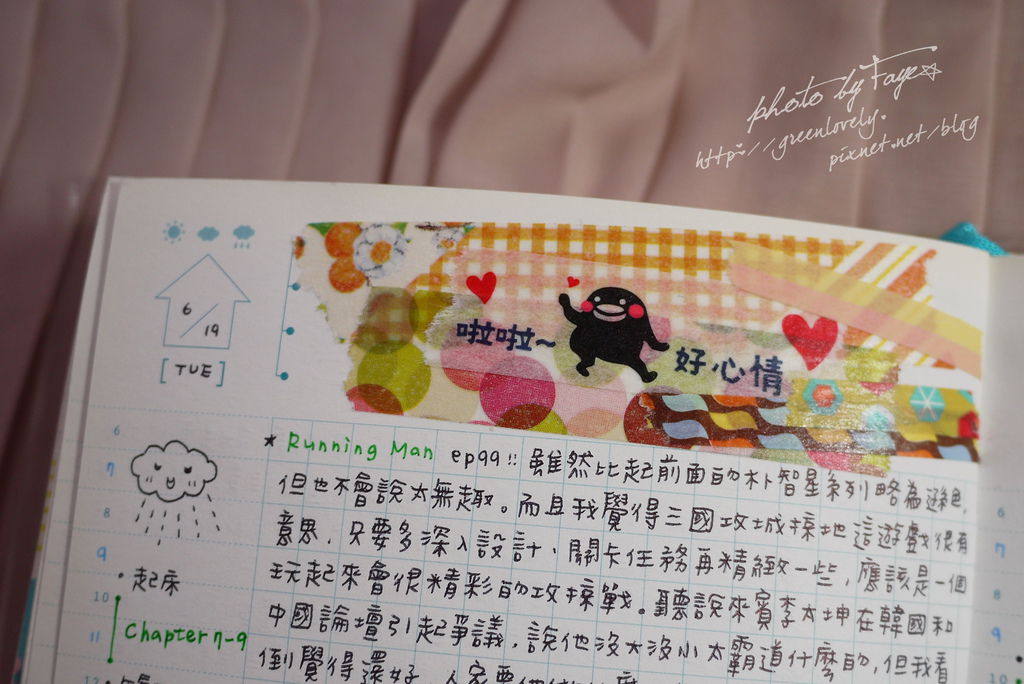 photo by Faye
http://greenlovely.
pixnet.net/blog
6/19
[TUE]
啦啦~
好心情
★ Running Man ep99!! 雖然比起前面的朴智星系列略為遜色,
但也不會說太無趣。而且我覺得三國攻城掠地這遊戲很有
意思,只要多深入設計、關卡任務再精緻一些,應該是一個
玩起來會很精彩的攻掠戰。聽說來賓李太坤在韓國和
中國論壇引起爭議,說他沒大沒小太霸道什麼的,但我看
倒覺得還好
6
7
8
9
・起床
10
11
Chapter 7-9
12
6
7
8
9
10